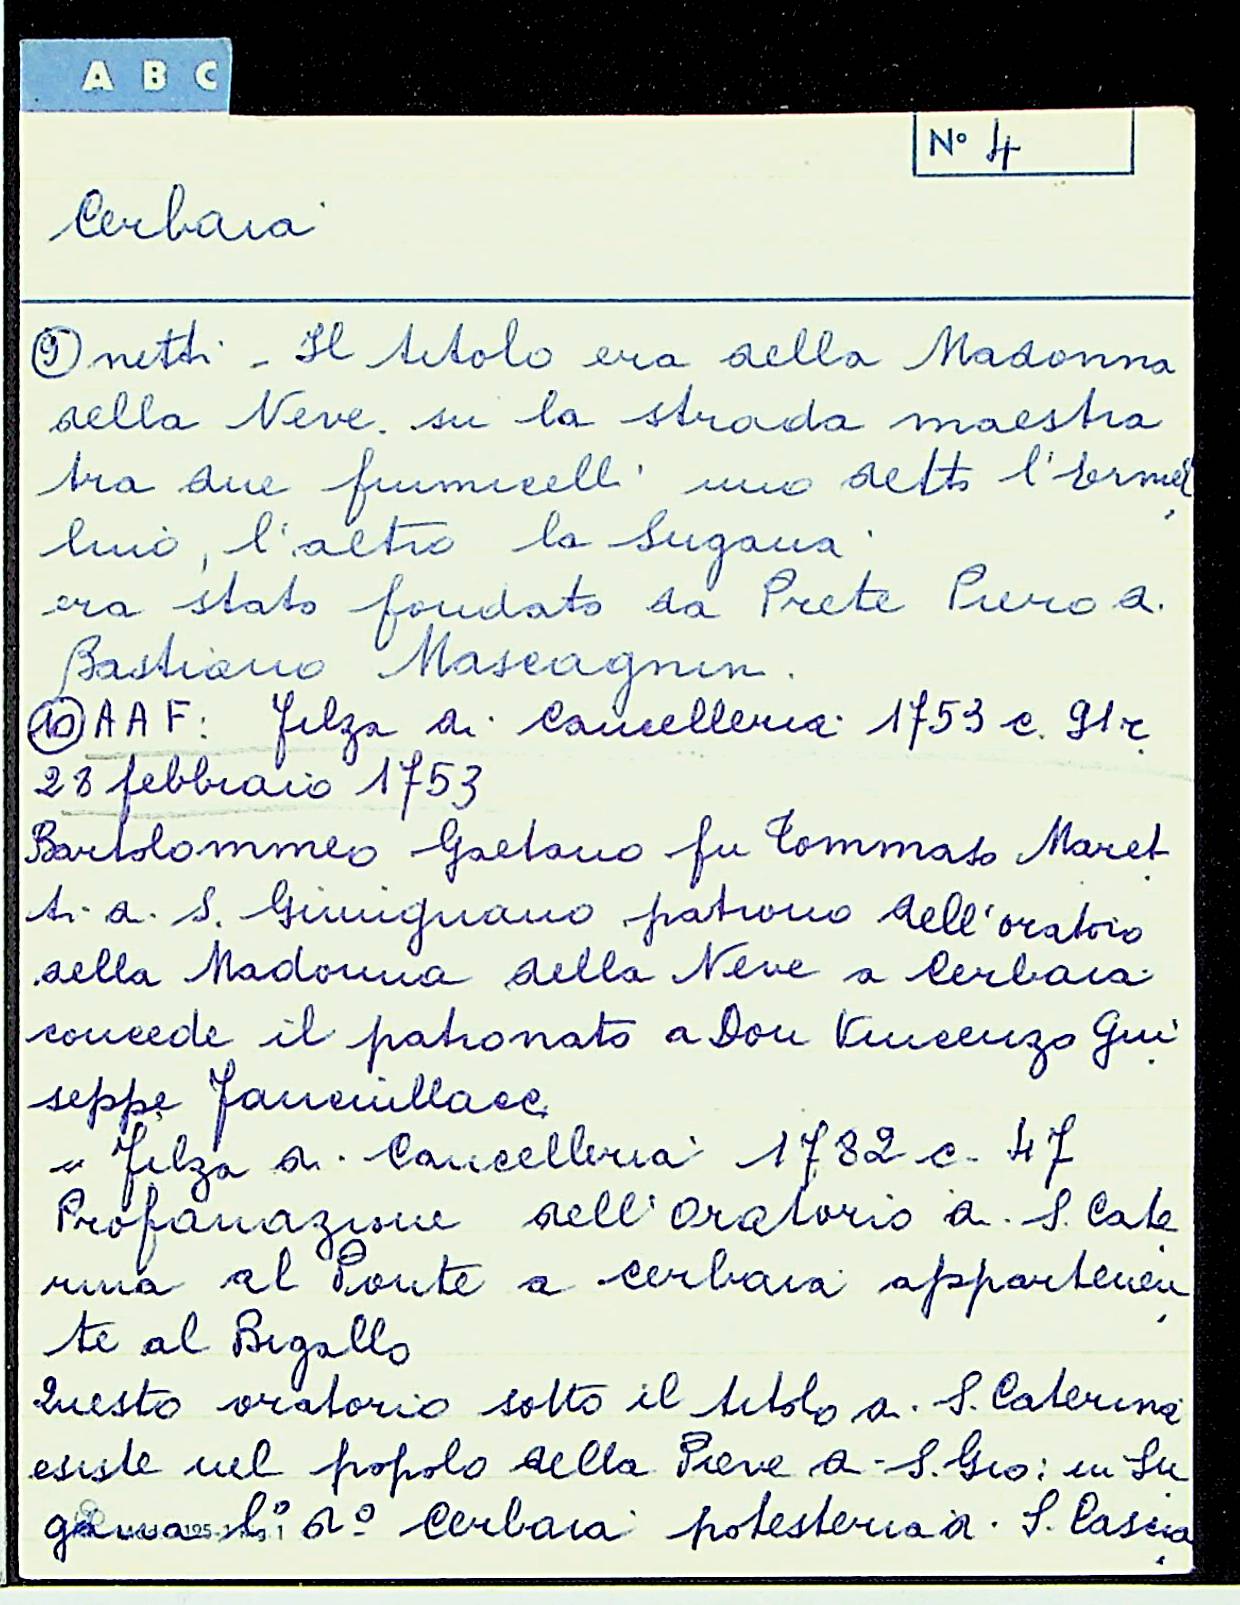 A B C
N° 4
Cerbaia
⑨ netti - Il titolo era della Madonna
della Neve. su la strada maestra
tra due fiumicelli uno detto l'
lino, l'altro la Sugana
era stato fondato da Prete Piero di
Bastiano Mascagnin.
⑩ A A F: Filza di Cancelleria 1753 c. 91r
28 febbraio 1753
Bartolommeo Gaetano fu Tommaso Maret
ti di S. Gimignano patrono dell'oratorio
della Madonna della Neve a Cerbaia
concede il patronato a Don Vincenzo Giu
seppe Fanciullacc
" Filza di Cancelleria 1782 c. 47
Profanazione dell'Oratorio di S. Cate
rina al Ponte a Cerbaia appartenen
te al Bigallo
Questo oratorio sotto il titolo di S. Caterina
esiste nel popolo della Pieve di S. Gio: in Su
gana l° d° Cerbaia potesteria di S. Cascia